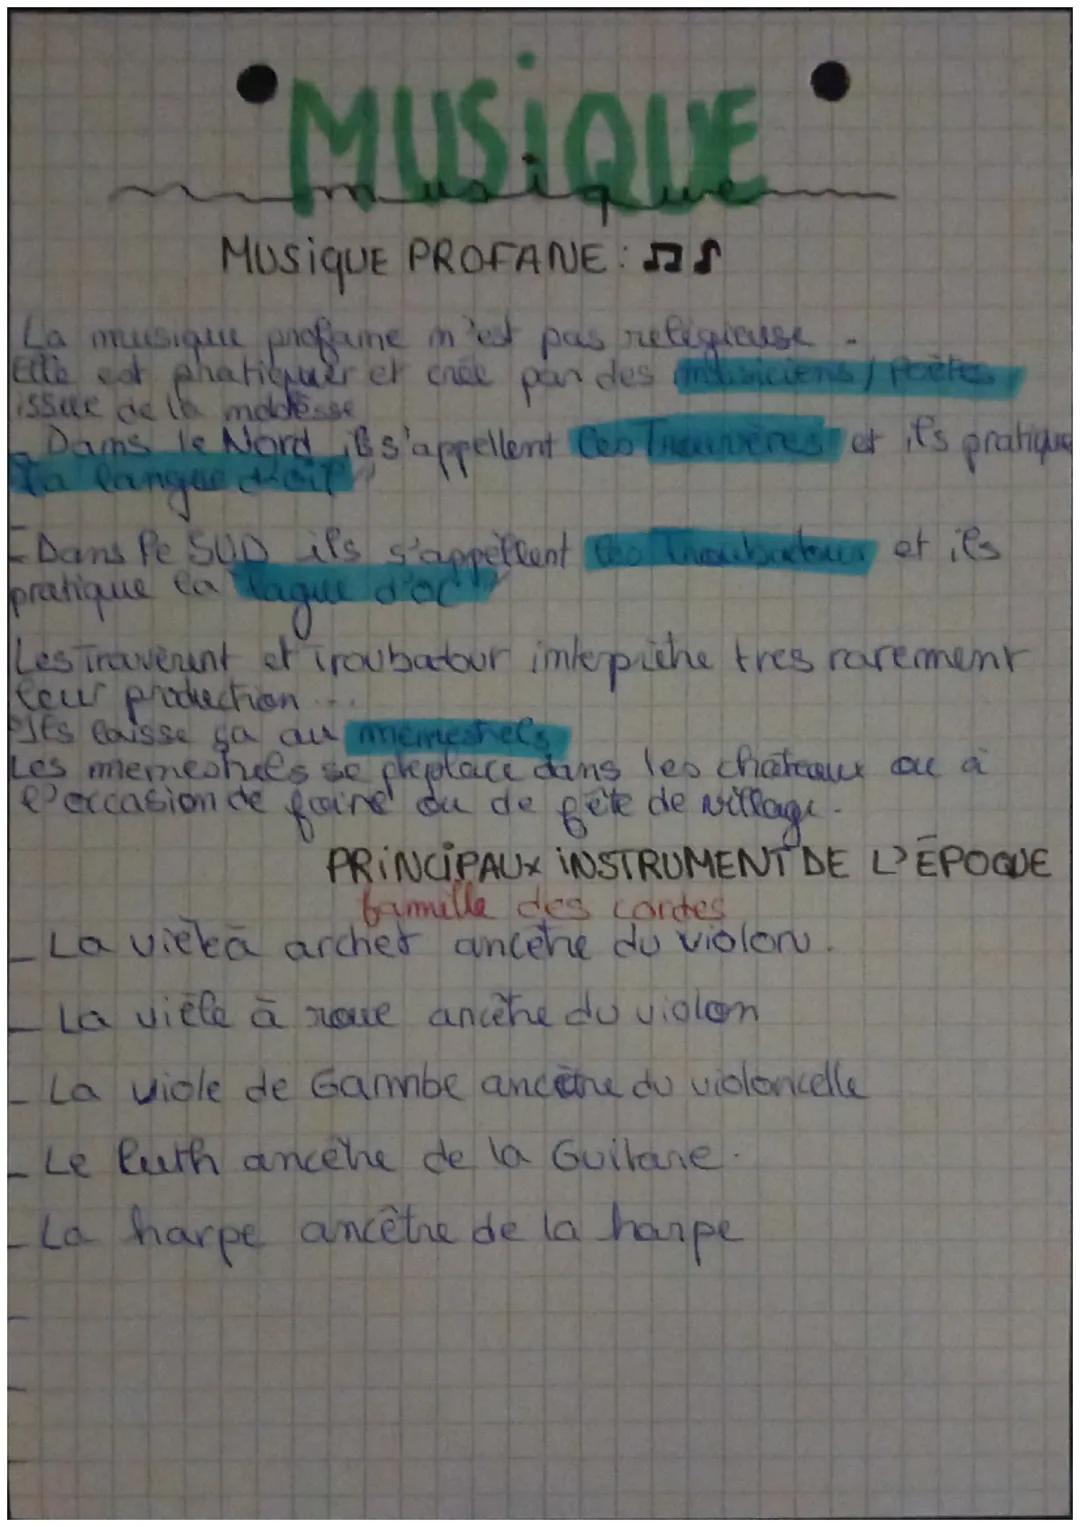 MUSiQUE
musique
MUSiQUE PROFANE : ♫♪
La musique profane n'est pas religieuse.
Elle est pratiquer et créé par des musiciens / Poètes
issue de la noblesse
- Dans le Nord, ils s'appellent les Trouvères et ils pratique
la langue d'oïl"
- Dans le SUD ils s'appellent les Troubadour et ils
pratique la "lague d'oc"
Les Trouverent et Troubatour interprète tres rarement
leur production ...
Ils laisse ça au menestrels
Les menestrels se déplace dans les châteaux ou à
l'occasion de foire ou de fête de village.
PRiNCiPAUX iNSTRUMENT DE L'ÉPOQUE
famille des cordes
- La vièle à archet ancêtre du violon.
- La vièle à roue ancêtre du violon
- La viole de Gambe ancêtre du violoncelle
- Le luth ancêtre de la Guitare.
- La harpe ancêtre de la harpe